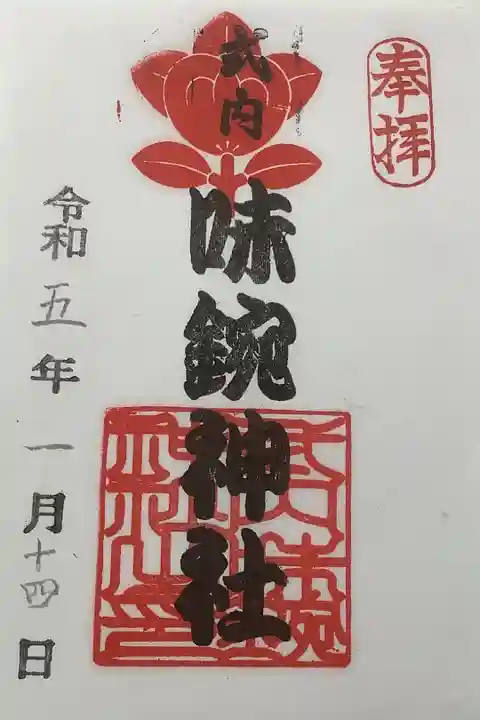 奉拝
式内
味鋺神社
令和五年一月十四日